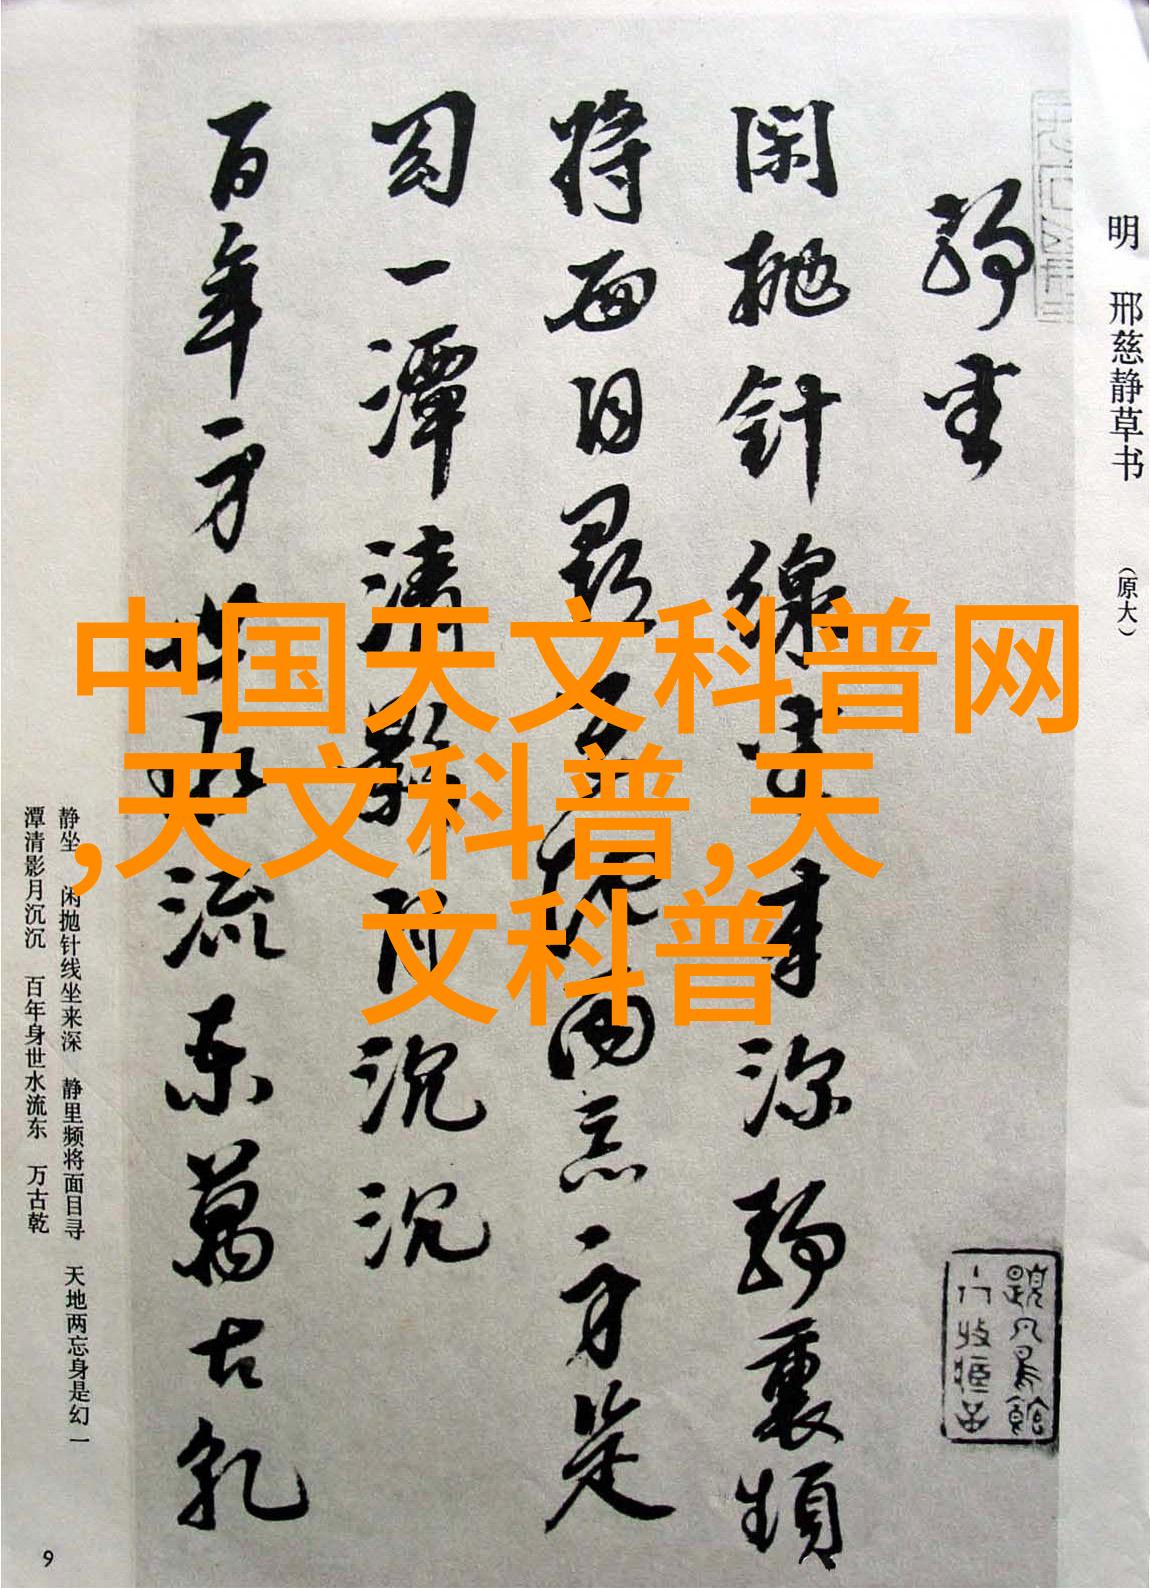 明 邢慈静草书 （原大）
静坐
闲抛针线坐来深静里频
将面目寻天地两忘身是
幻一潭清影月沉沉
百年身世水流东万古乾
静坐 闲抛针线坐来深 静里频将面目寻 天地两忘身是幻 一
潭清影月沉沉 百年身世水流东 万古乾
9
中国天文科普网
,天文科普,天
文科普